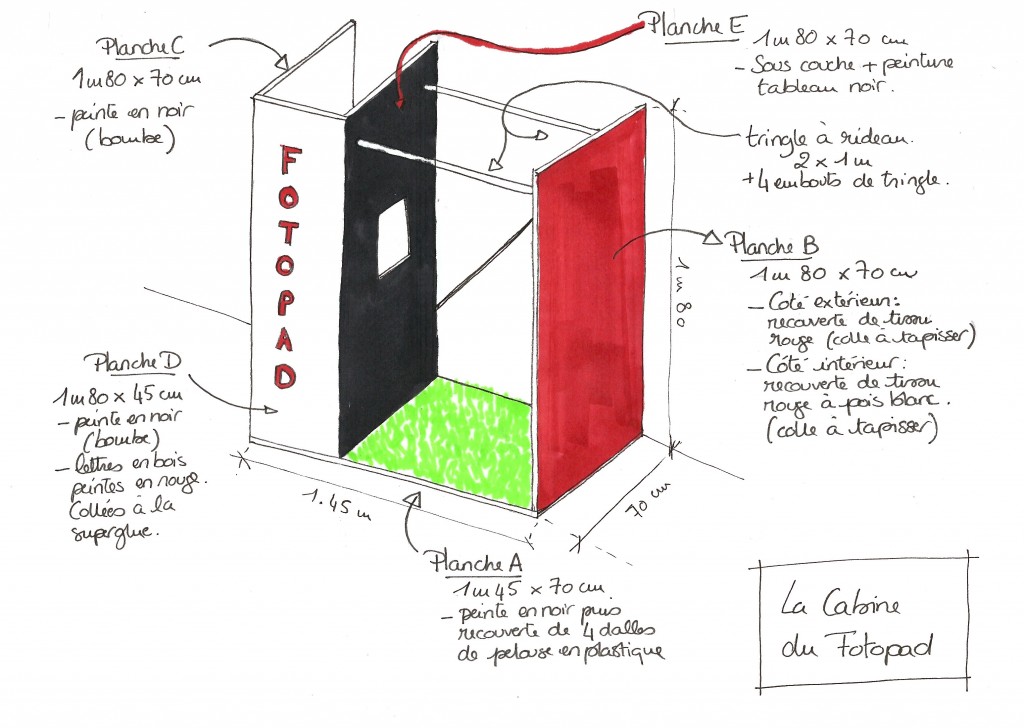 Planche C
1m80 x 70 cm
- peinte en noir
(bombe)
Planche E
1m80 x 70 cm
- Sous couche + peinture
tableau noir.
tringle à rideau.
2 x 1m
+4 embouts de tringle.
FOTOPAD
Planche B
1m 80 x 70 cm
- Coté extérieur:
recouverte de tissu
rouge (colle à tapisser)
- Côté intérieur:
recouverte de tissu
rouge à pois blanc.
(colle à tapisser)
1m80
Planche D
1m80 x 45 cm
- peinte en noir
(bombe)
- lettres en bois
peintes en rouge.
Collées à la
superglue.
1.45 m
70 cm
Planche A
1m45 x 70 cm.
- peinte en noir puis
recouverte de 4 dalles
de pelouse en plastique
La Cabine
du Fotopad